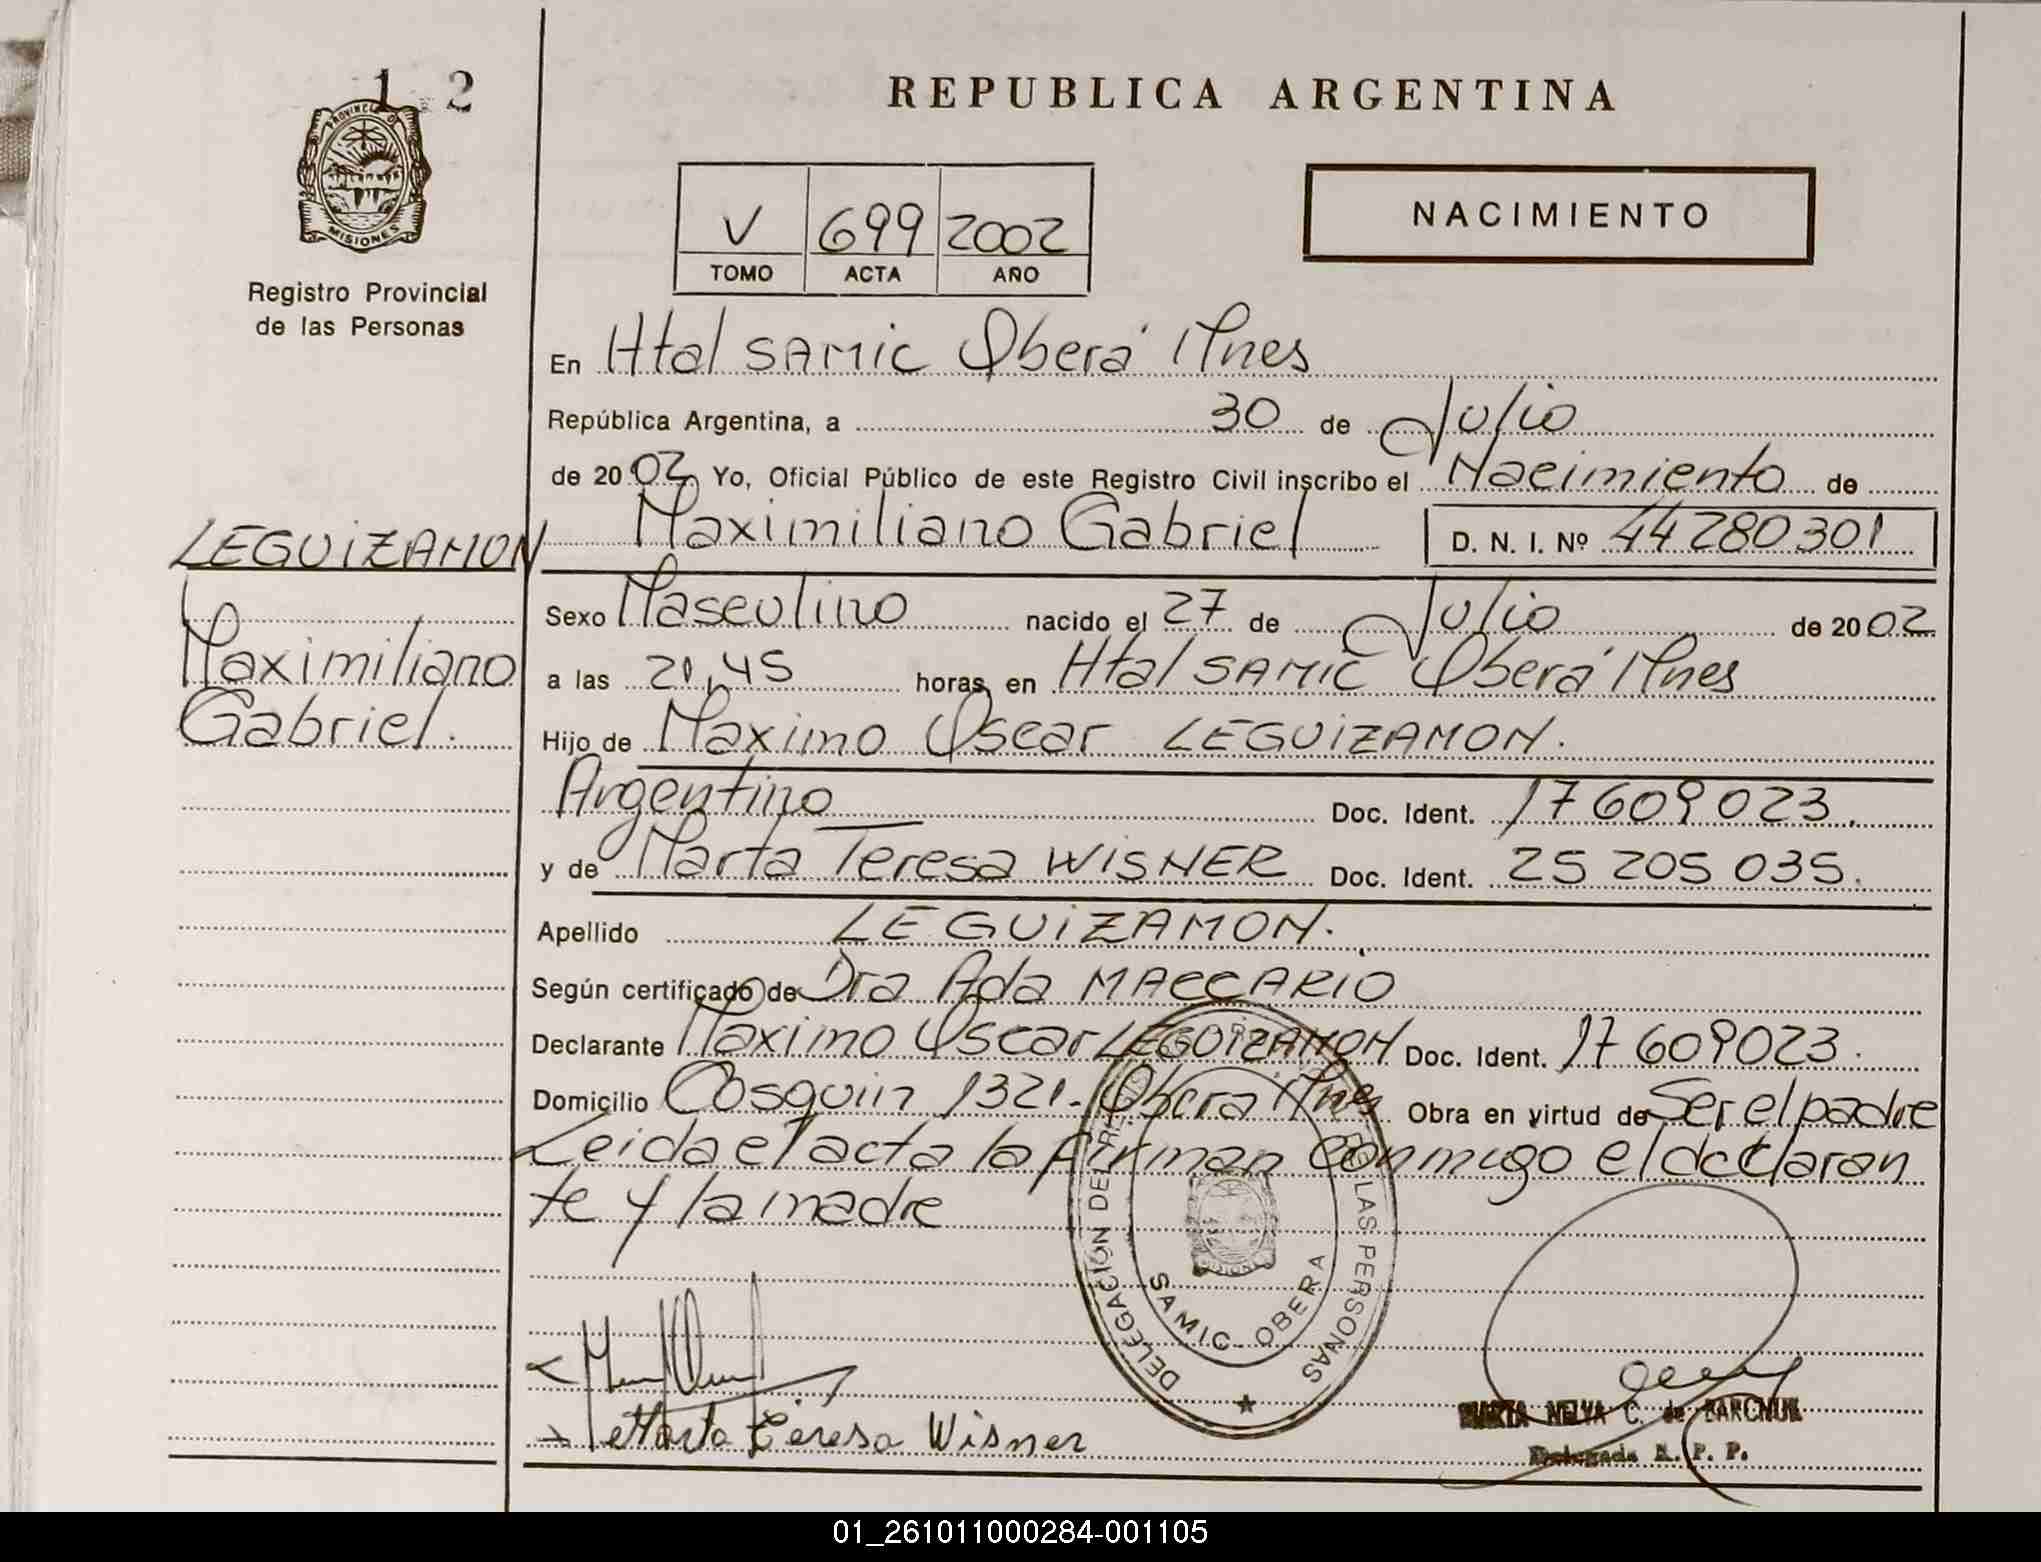 1 2
REPUBLICA ARGENTINA
PROVINCIA D
MISIONES
Registro Provincial
de las Personas
V 699 2002
TOMO ACTA AÑO
NACIMIENTO
En Htal SAMIC Oberá Mnes
República Argentina, a 30 de Julio
de 2002 Yo, Oficial Público de este Registro Civil inscribo el Nacimiento de
LEGUIZAMON
Maximiliano Gabriel D. N. I. Nº 44280301
Maximiliano
Gabriel.
Sexo Masculino nacido el 27 de Julio de 2002
a las 20,45 horas, en Htal SAMIC Oberá Mnes
Hijo de Maximo Oscar LEGUIZAMON.
Argentino Doc. Ident. 17609023.
y de Marta Teresa WISNER Doc. Ident. 25 205 035.
Apellido LEGUIZAMON.
Según certificado de Dra Ada MACCARIO
Declarante Maximo Oscar LEGUIZAMON Doc. Ident. 17609023.
Domicilio Cosquin 1321. Obera Mnes Obra en virtud de Ser el padre
Leida el acta la firman conmigo el declaran
te y la madre
DELEGACIÓN DEL LAS PERSONAS
SAMIC - OBERA
Marta Teresa Wisner
MARTA NELVA C. de BARCHUK
Delegada R. P. P.
01_261011000284-001105